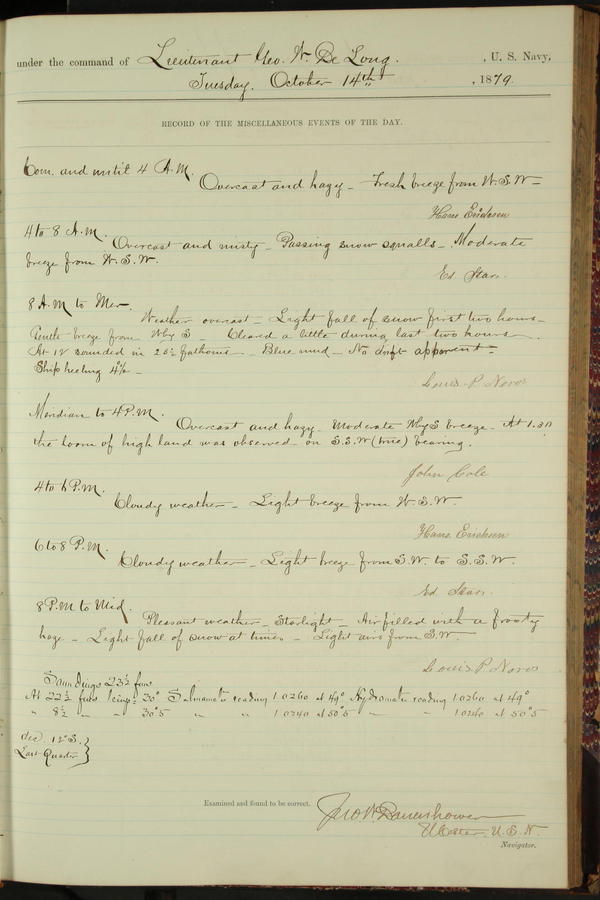 under the command of Lieutenant Geo. W. De Long. , U. S. Navy,
Tuesday. October 14th , 1879.
RECORD OF THE MISCELLANEOUS EVENTS OF THE DAY.
Com. and until 4 A.M.
Overcast and hazy – Fresh breeze from W.S.W –
Hans Erickson
4 to 8 A.M.
Overcast and misty – Passing snow squalls – Moderate
breeze from W.S.W.
Ed Starr.
8 A.M to Mer.
Weather overcast – Light fall of snow first two hours –
Gentle breeze from WbyS – Cleared a little during last two hours –
At 12 sounded in fathoms – Blue mud – No drift apparent –
Ship heeling 4½ –
Louis P. Noros
Meridian to 4 P.M.
Overcast and hazy – Moderate WbyS breeze – At 1.30
the loom of high land was observed on S.S.W (true) bearing.
John Cole
4 to 6 P.M.
Cloudy weather – Light breeze from W.S.W.
Hans Erickson
6 to 8 P.M.
Cloudy weather – Light breeze from S.W. to S.S.W.
Ed Starr.
8 P.M to Mid.
Pleasant weather – Starlight – Air filled with a frosty
haze – Light fall of snow at times – Light airs from S.W.
Louis P. Noros
Soundings 23½ fms
At 22½ fms temp: 30° Salinometer reading 1.0260 at 49° Hydrometer reading 1.0260 at 49°
" 8½ " " 30°5 " " 1.0240 at 50°5 " " 1.0260 at 50°5
dec. 12°S.
Last Quarter
Examined and found to be correct.
Jno W. Danenhower
Master, U.S.N.
Navigator.